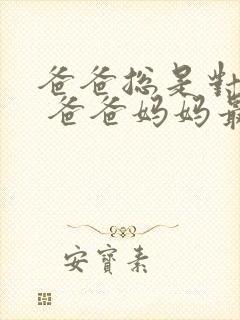 爸爸总是对
爸爸妈妈最
安宝素